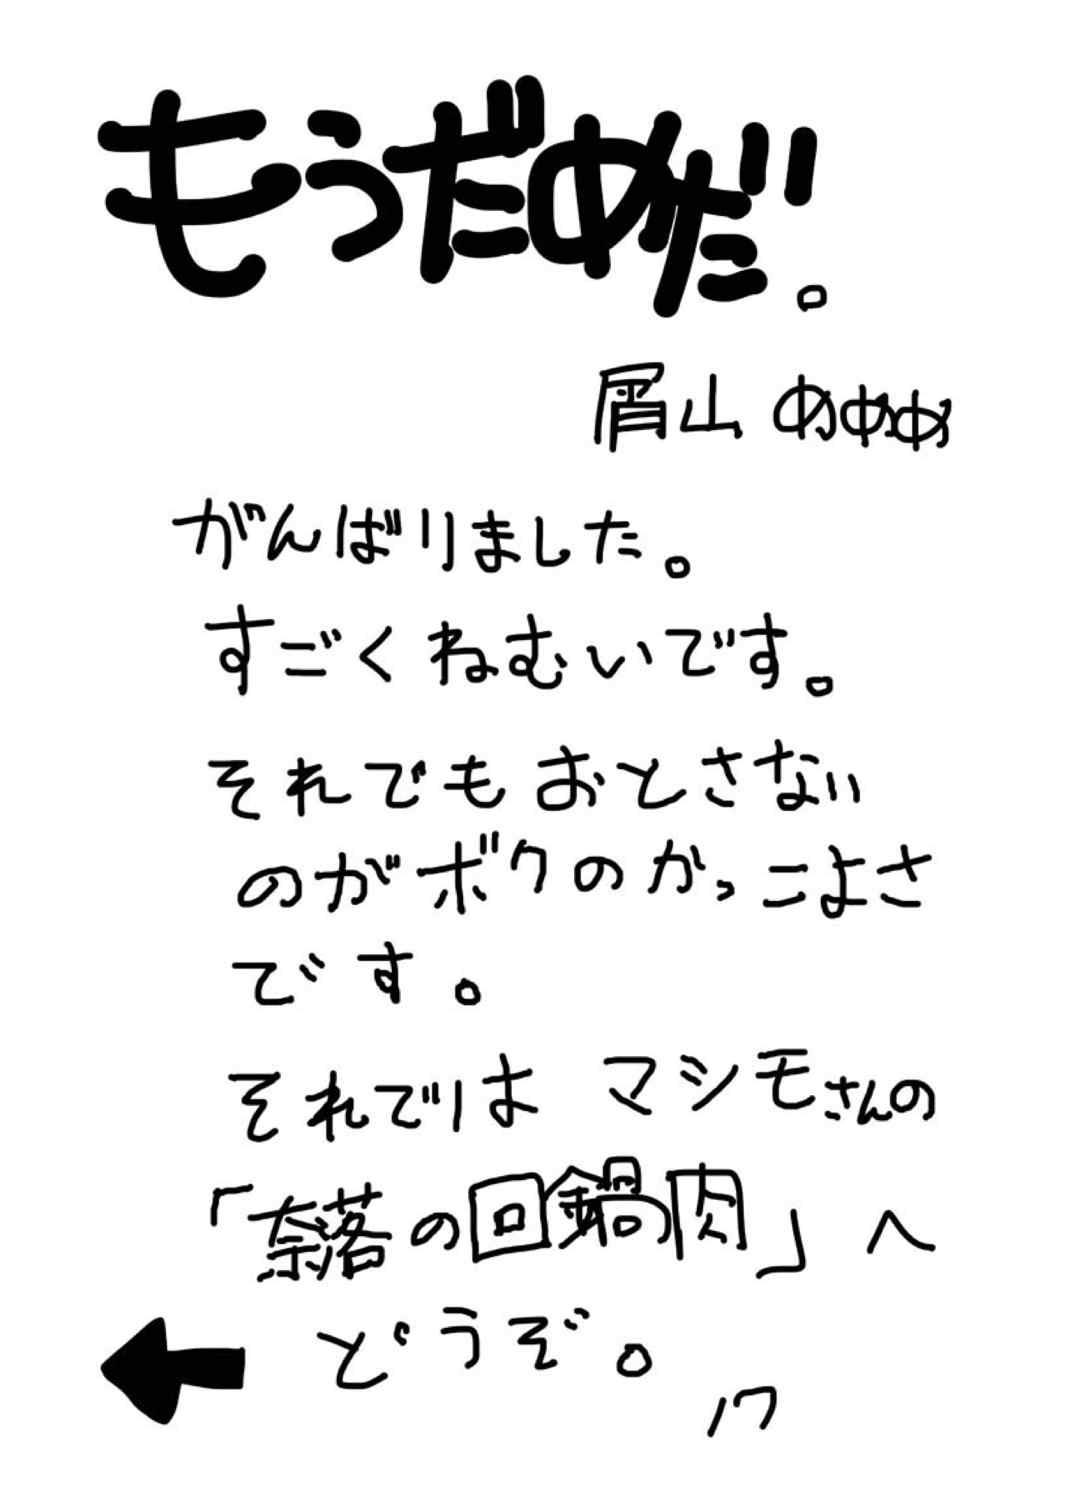 もうだめだ。
屑山 あめぬ
がんばりました。
すごくねむいです。
それでもおとさない
のがボクのかっこよさ
です。
それでは マシモさんの
「奈落の回鍋肉」へ
どうぞ。
17